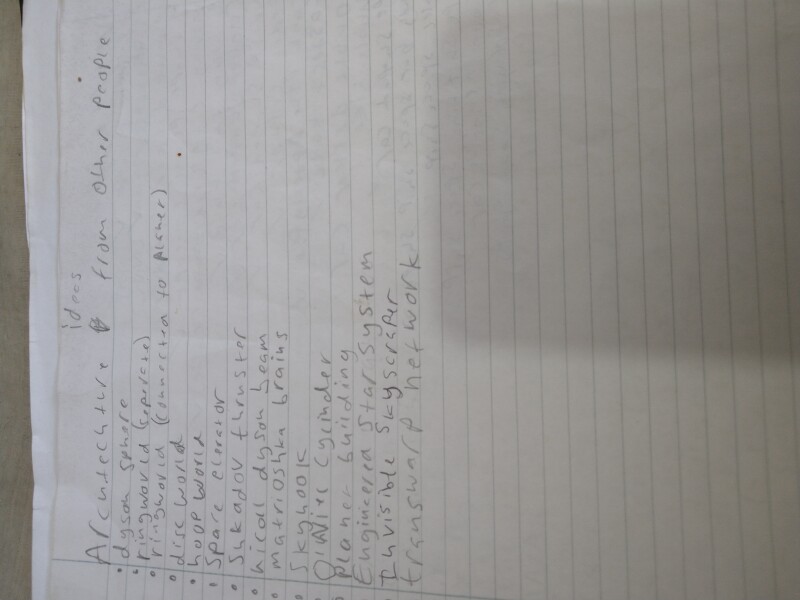 ideas
Arcutechture from other people
• dyson sphere
• ringworld (seperate)
• ringworld (connected to planer)
• disc world
• hoop world
• Space elevator
• Shkadov thruster
• nicoll dyson beam
• matrioshka brains
• Skyhook
• O'Niel Cylinder
• planer building
• Engineered Star System
• Invisible Skyscraper
• transwarp network